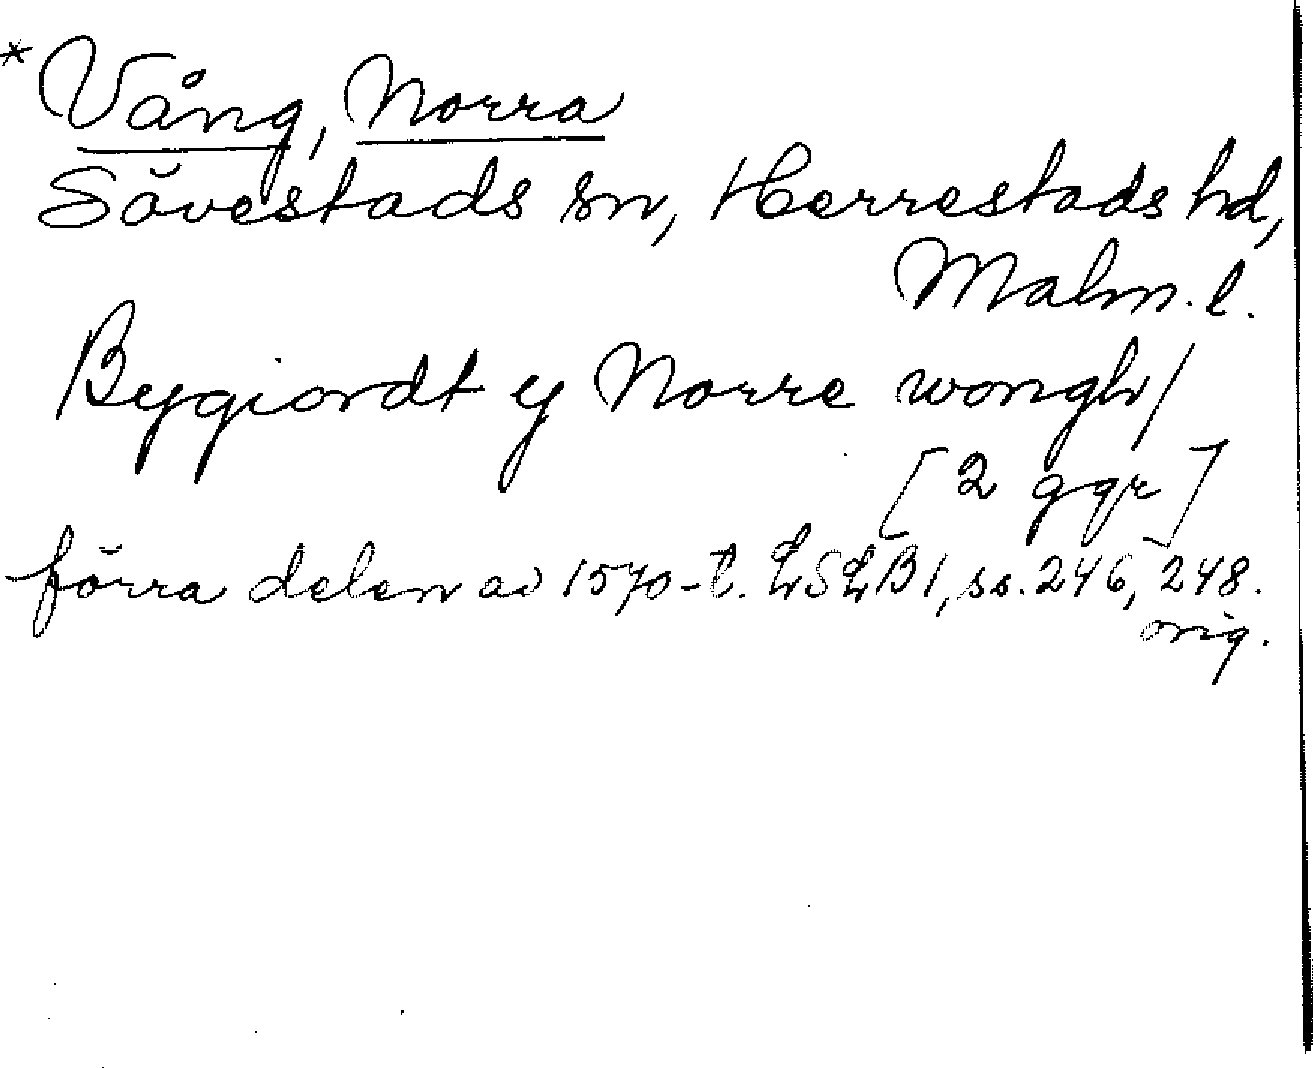 *Vång, Norra
Sövestads sn, Herrestads hd,
Malm. l.
Bygiordt y Norre wongh/
[2 ggr]
förra delen av 1570-t. LSLB1, ss. 246, 248.
orig.